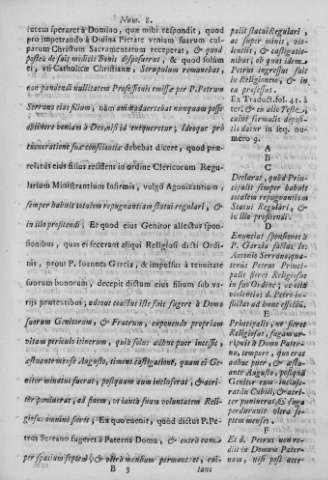 Num. 8.
lutem speraret à Domino, quæ mihi respondit, quod
pro impetrando à Divina Pietate veniam suarum cul-
parum Christum Sacramentatum receperat, & quod
postea de suis medicis Bonis disposuerat, & quod solùm
ei, uti Catholico Christiano, Scrupulum remanebat,
non pandendi nullitatem Professionis emissæ per P. Petrum
Serrano eius filium, nàm animadvertebat nunquam posse
obtinere veniam à Deo, nisi id exequeretur; Ideoque prò
exoneratione suæ conscientiæ debebat dicere, quod præ-
relatus eius filius residens in ordine Clericorum Regu-
larium Ministrantium Infirmis, vulgò Agonizantium,
semper habuit totalem repugnantiam statui regulari, &
in illo profitendi; Et quod eius Genitor allectus spon-
sionibus, quas ei fecerant aliqui Religiosi dicti Ordi-
nis, prout P. Joannes Garcia, & impulsus à tenuitate
suorum bonorum, decepit dictum eius filium sub va-
rijs pretextibus, adeout coactus iste fuit fugere à Domo
suorum Genitorum, & Fratrum, exponendo propriam
vitam periculo itinerum, quia solus adhuc puer incessit,
æstuante mense Augusto, timens castigationē, quam ei Ge-
nitor minatus fuerat, posteaquam eum incluserat, & acri-
ter punierat, ad finem, ut invitè suam voluntatem Reli-
giosus inibi fieret; Ex quo evenit, quod dictus P. Pe-
trus Serrano fugeret à Paterna Domo, & extrà eam
per spatium septem, & ultrà mensium permaneret, con-
B 3 tans
pulit statui Regulari,
ac super minis, vio-
lentijs, & castigatio-
nibus, ob quas idem
Petrus ingressus fuit
in Religionem, & in
ea professus.
Ex Traduct. fol. 41. à
ter. & ex alio Teste,
cuius formalis deposi-
tio datur in seq. nu-
mero 9.
A
B
C
Declarat, quod Princi-
palis semper habuit
totalem repugnantiam
Statui Regulari, &
in illo profitendi.
D
Enunciat sponsiones à
P. Garzia factas Io:
Antonio Serrano, qua-
tenus Petrus Princi-
palis fieret Religiosus
in suo Ordine; ac
violentias d. Petro in-
flictas ad hunc effectū.
E
Principalis, ne fieret
Religiosus, fugam ar-
ripuit à Domo Pater-
na, tempore, quo erat
adhuc puer, & æstu-
ante Augusto, postquā
Genitor eum inclusē-
rat in Cubili, & acri-
ter punierat, & fuga
perduravit ultra se-
ptem menses.
F
Et d. Petrus non re-
dijt in Domum Pater-
nam, nisi post acce-